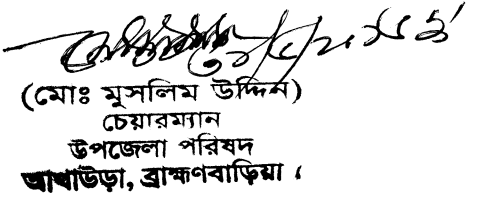 (মোঃ মুসলিম উদ্দিন)
চেয়ারম্যান
উপজেলা পরিষদ
আখাউড়া, ব্রাহ্মণবাড়িয়া ।